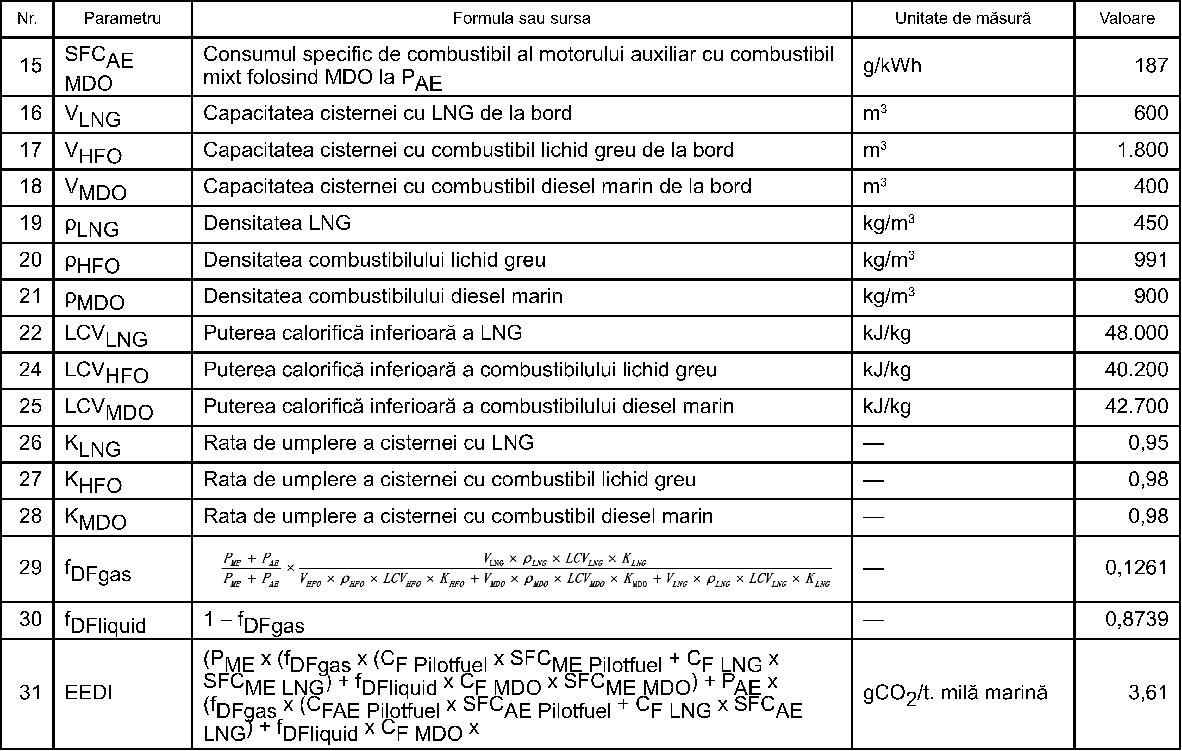 Nr. Parametru Formula sau sursa Unitate de măsură Valoare
15 SFC_AE MDO Consumul specific de combustibil al motorului auxiliar cu combustibil mixt folosind MDO la P_AE g/kWh 187
16 V_LNG Capacitatea cisternei cu LNG de la bord m³ 600
17 V_HFO Capacitatea cisternei cu combustibil lichid greu de la bord m³ 1.800
18 V_MDO Capacitatea cisternei cu combustibil diesel marin de la bord m³ 400
19 ρ_LNG Densitatea LNG kg/m³ 450
20 ρ_HFO Densitatea combustibilului lichid greu kg/m³ 991
21 ρ_MDO Densitatea combustibilului diesel marin kg/m³ 900
22 LCV_LNG Puterea calorifică inferioară a LNG kJ/kg 48.000
24 LCV_HFO Puterea calorifică inferioară a combustibilului lichid greu kJ/kg 40.200
25 LCV_MDO Puterea calorifică inferioară a combustibilului diesel marin kJ/kg 42.700
26 K_LNG Rata de umplere a cisternei cu LNG — 0,95
27 K_HFO Rata de umplere a cisternei cu combustibil lichid greu — 0,98
28 K_MDO Rata de umplere a cisternei cu combustibil diesel marin — 0,98
29 f_DFgas (P_ME + P_AE) / (P_ME + P_AE) × (V_LNG × ρ_LNG × LCV_LNG × K_LNG) / (V_HFO × ρ_HFO × LCV_HFO × K_HFO + V_MDO × ρ_MDO × LCV_MDO × K_MDO + V_LNG × ρ_LNG × LCV_LNG × K_LNG) — 0,1261
30 f_DFliquid 1 – f_DFgas — 0,8739
31 EEDI (P_ME x (f_DFgas x (C_F Pilotfuel x SFC_ME Pilotfuel + C_F LNG x
SFC_ME LNG) + f_DFliquid x C_F MDO x SFC_ME MDO) + P_AE x
(f_DFgas x (C_FAE Pilotfuel x SFC_AE Pilotfuel + C_F LNG x SFC_AE
LNG) + f_DFliquid x C_F MDO x gCO₂/t. milă marină 3,61